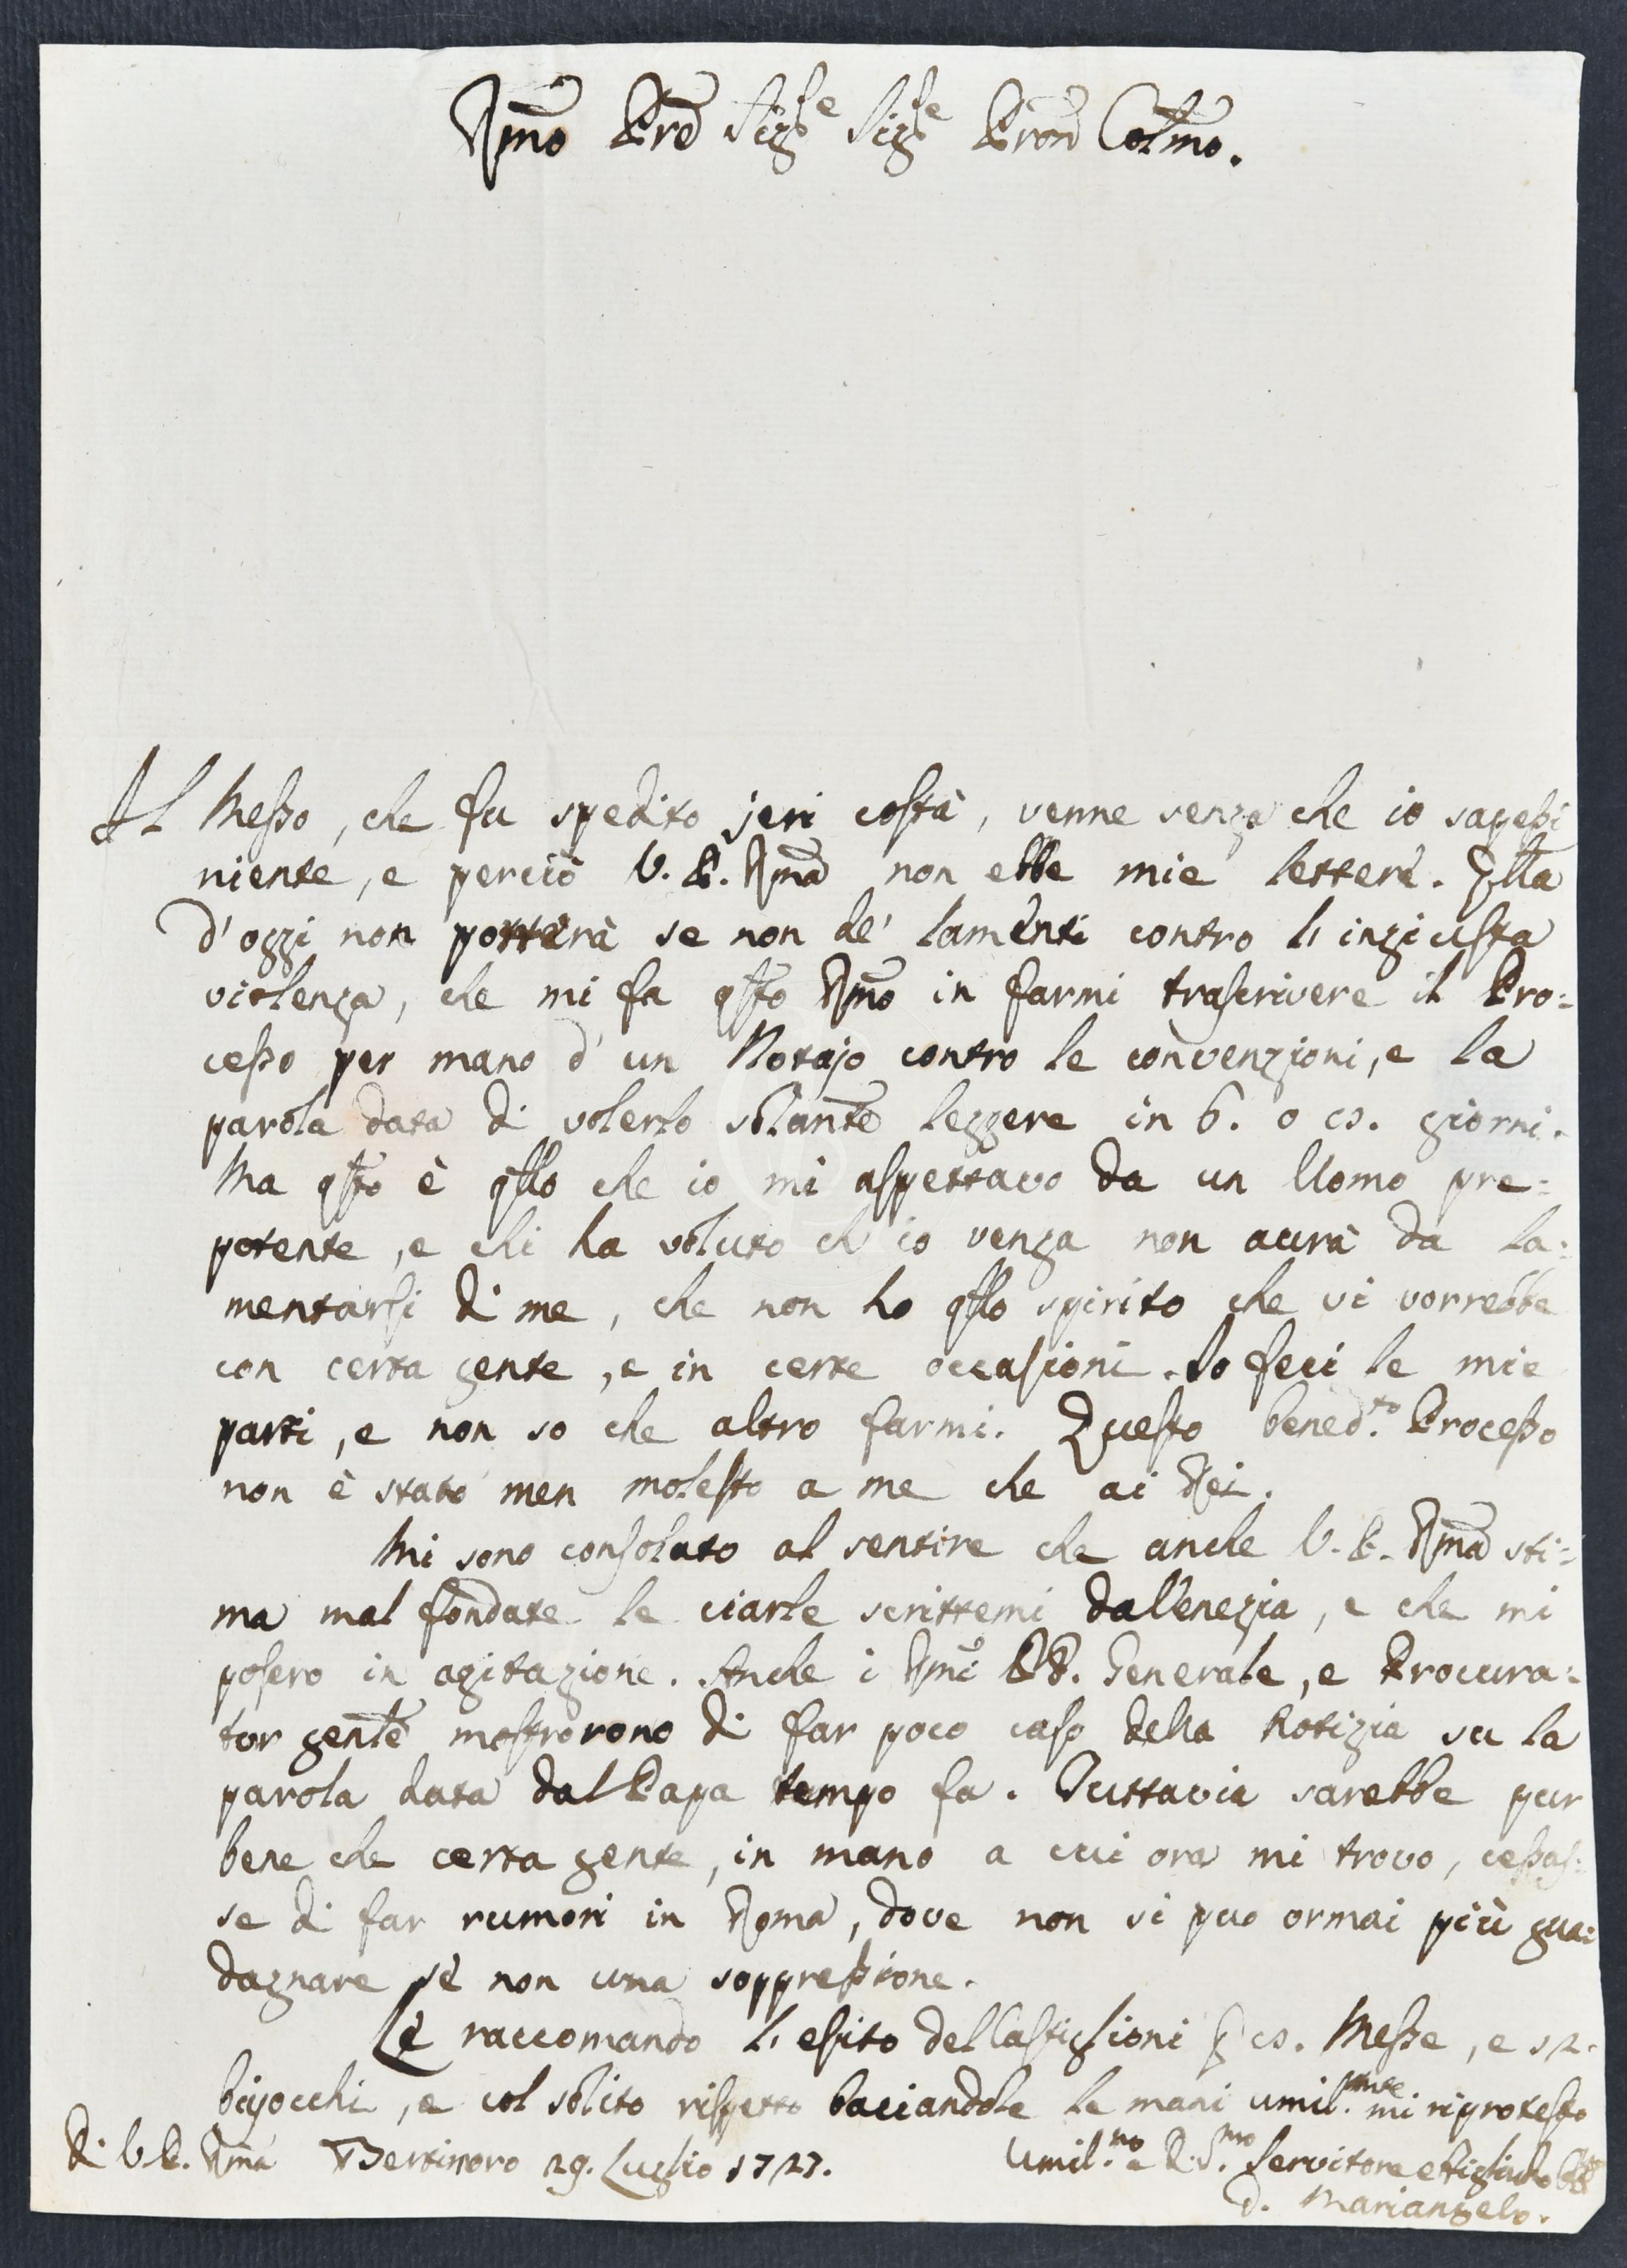 Rmo Pre Sig.re Sig.re Pron Colmo.
Il Messo, che fu spedito jeri costà, venne senza che io sapessi
niente, e perciò V. P. Rma non ebbe mie lettere. Qlla
d'oggi non porterà se non de' lamenti contro l'ingiusta
violenza, che mi fa qsto Rmo in farmi trascrivere il Pro=
cesso per mano d'un Notajo contro le convenzioni, e la
parola data di volerlo solamte leggere in 6. o giorni.
Ma qsto è qllo che io mi aspettavo da un Uomo pre=
potente, e chi ha voluto ch'io venga non avrà da la=
mentarsi di me, che non ho qllo spirito che vi vorrebbe
con certa gente, e in certe occasioni. Io feci le mie
parti, e non so che altro farmi. Questo bened.to Processo
non è stato men molesto a me che ai Rei.
Mi sono consolato al sentire che anche V. P. Rma sti=
ma mal fondate le ciarle scrittemi da Venezia, e che mi
posero in agitazione. Anche i Rmi PP. Generale, e Procura=
tor gente mostrorono di far poco caso della Notizia su la
parola data dal Papa tempo fa. Tuttavia sarebbe pur
bene che certa gente, in mano a cui ora mi trovo, cessas=
se di far rumori in Roma, dove non si puo ormai più gua=
dagnare se non una soppressione.
Le raccomando l'esito del Castiglioni Messe, e 12.
bajocchi, e col solito rispetto baciandole le mani umil.mte mi riprotesto
Di V. P. Rma Bertinoro 29. Luglio 1727. Umil.mo e D.mo Servitore e Figliuolo
D. Mariangelo.